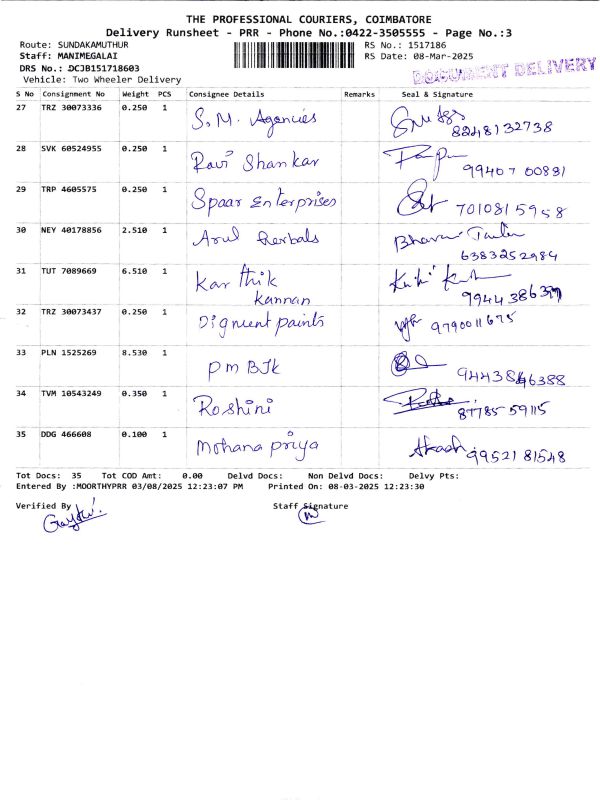 THE PROFESSIONAL COURIERS, COIMBATORE
Delivery Runsheet - PRR - Phone No.:0422-3505555 - Page No.:3
Route: SUNDAKAMUTHUR RS No.: 1517186
Staff: MANIMEGALAI RS Date: 08-Mar-2025
DRS No.: DCJB151718603 DOCUMENT DELIVERY
Vehicle: Two Wheeler Delivery
S No Consignment No Weight PCS Consignee Details Remarks Seal & Signature
27 TRZ 30073336 0.250 1 S.M. Agencies
8248132738
28 SVK 60524955 0.250 1 Ravi Shankar
99407 00831
29 TRP 4605575 0.250 1 Spaar Enterprises 7010815958
30 NEY 40178856 2.510 1 Arul Herbals
6383252984
31 TUT 7089669 6.510 1 Karthik
Kannan
32 TRZ 30073437 0.250 1 Digment paints 9790011675
33 PLN 1525269 8.530 1 PM BJK
34 TVM 10543249 0.350 1 Roshini
87785 59115
35 DDG 466608 0.100 1 Mohana priya Akash 99521 81548
Tot Docs: 35 Tot COD Amt: 0.00 Delvd Docs: Non Delvd Docs: Delvy Pts:
Entered By :MOORTHYPRR 03/08/2025 12:23:07 PM Printed On: 08-03-2025 12:23:30
Verified By Staff Signature